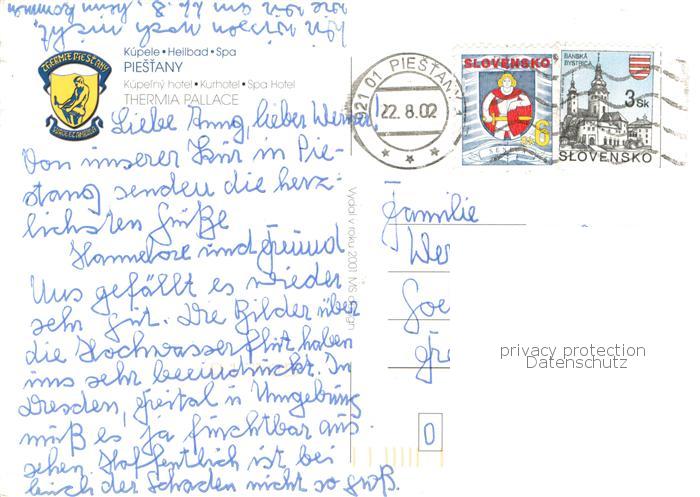 Kúpele • Heilbad • Spa
PIEŠŤANY
Kúpeľný hotel • Kurhotel • Spa Hotel
THERMIA PALLACE
THERMIE PIEŠŤANY
Liebe Anny, lieber Werner!
Von unserer Kur in Pie-
stany senden die herz-
lichsten Grüße
Hannelore und
Uns gefällt es wieder
sehr gut. Die Bilder über
die Hochwasserflut haben
uns sehr beeindruckt. In
Dresden, Freital u Umgebung
muß es ja furchtbar aus-
sehen. Hoffentlich ist bei
Euch der Schaden nicht so groß.
Vydal v roku 2001 MS design
921 01 PIEŠŤANY 1
22.8.02
SLOVENSKO
Sk 6
BANSKÁ
BYSTRICA
3 Sk
SLOVENSKO
Familie
Wer
Goe
0
privacy protection
Datenschutz